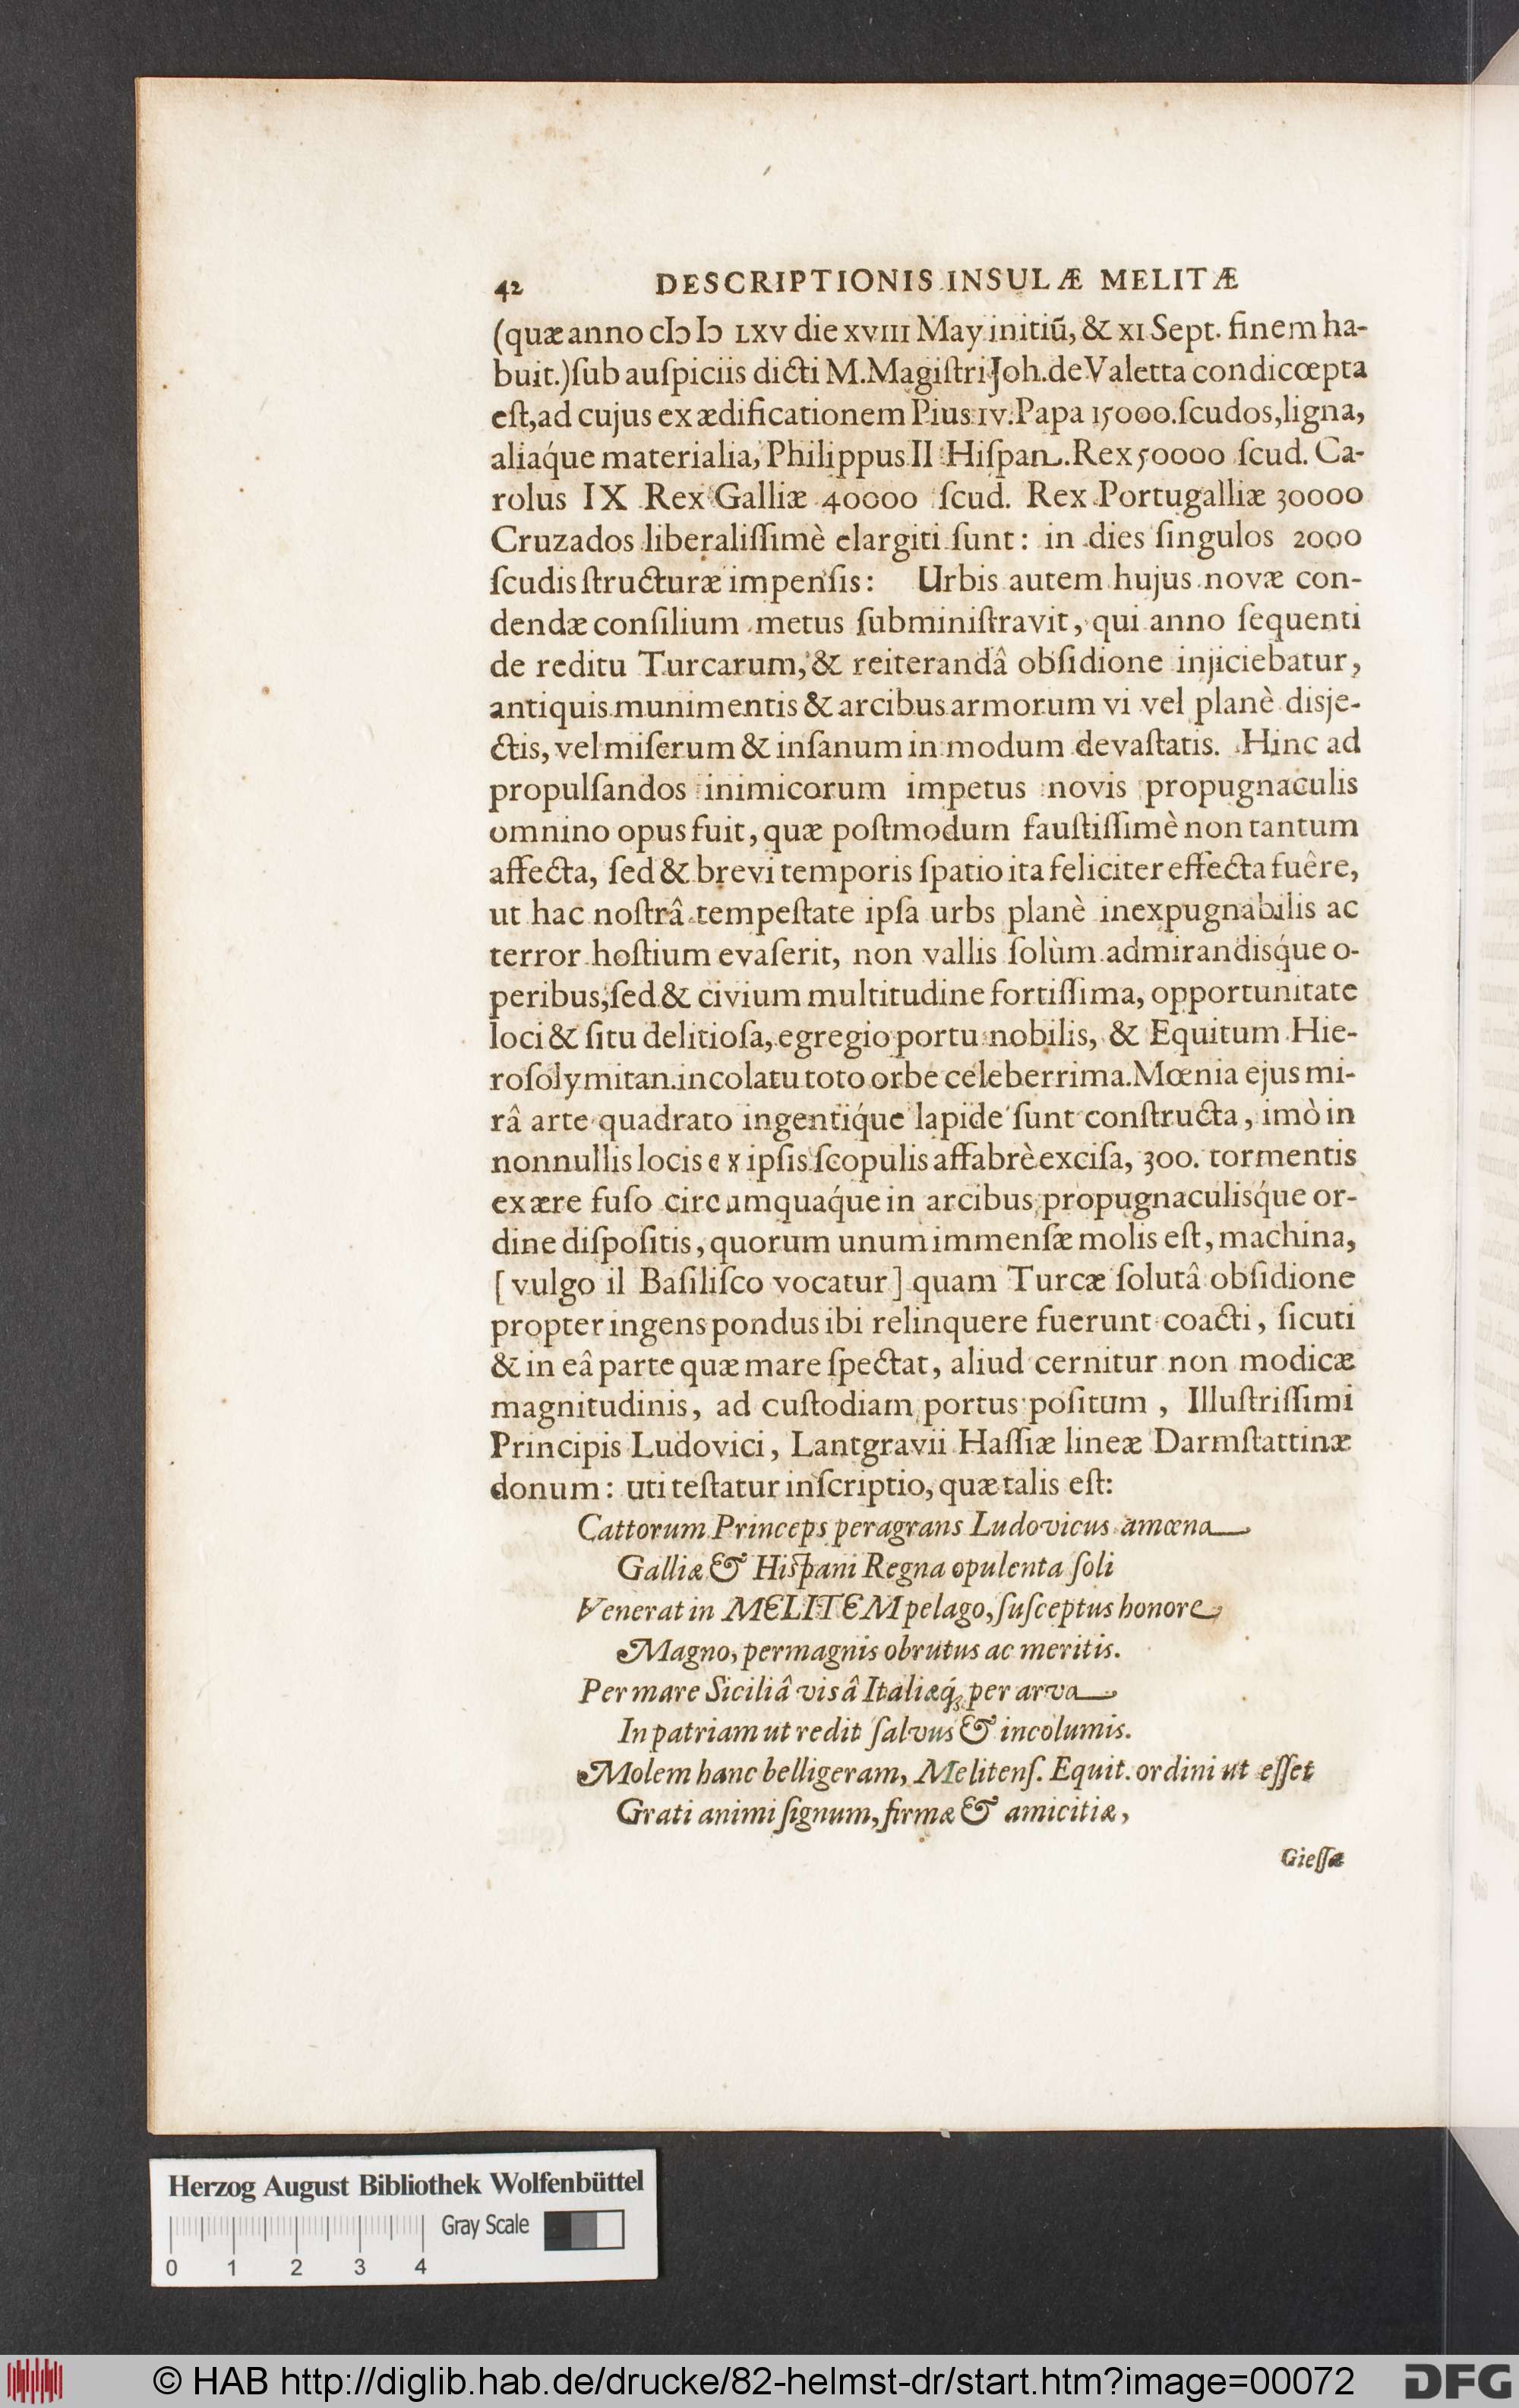 42 DESCRIPTIONIS INSULÆ MELITÆ
(quæ anno cIɔ Iɔ LXV die XVIII May initiũ, & XI Sept. finem ha-
buit.) ſub auſpiciis dicti M. Magiſtri Joh. de Valetta condi cœpta
eſt, ad cujus exædificationem Pius IV. Papa 15000. ſcudos, ligna,
aliaq́ue materialia, Philippus II Hiſpan. Rex 50000 ſcud. Ca-
rolus IX Rex Galliæ 40000 ſcud. Rex Portugalliæ 30000
Cruzados liberaliſſimè elargiti ſunt: in dies ſingulos 2000
ſcudis ſtructuræ impenſis: Urbis autem hujus novæ con-
dendæ conſilium metus ſubminiſtravit, qui anno ſequenti
de reditu Turcarum, & reiterandâ obſidione injiciebatur,
antiquis munimentis & arcibus armorum vi vel planè disje-
ctis, vel miſerum & inſanum in modum devaſtatis. Hinc ad
propulſandos inimicorum impetus novis propugnaculis
omnino opus fuit, quæ poſtmodum fauſtiſſimè non tantum
affecta, ſed & brevi temporis ſpatio ita feliciter effecta fuêre,
ut hac noſtrâ tempeſtate ipſa urbs planè inexpugnabilis ac
terror hoſtium evaſerit, non vallis ſolùm admirandisq́ue o-
peribus, ſed & civium multitudine fortiſſima, opportunitate
loci & ſitu delitioſa, egregio portu nobilis, & Equitum Hie-
roſolymitan. incolatu toto orbe celeberrima. Mœnia ejus mi-
râ arte quadrato ingentiq́ue lapide ſunt conſtructa, imò in
nonnullis locis ex ipſis ſcopulis affabrè exciſa, 300. tormentis
ex ære fuſo circumquaq́ue in arcibus propugnaculisq́ue or-
dine diſpoſitis, quorum unum immenſæ molis eſt, machina,
[vulgo il Baſiliſco vocatur] quam Turcæ ſolutâ obſidione
propter ingens pondus ibi relinquere fuerunt coacti, ſicuti
& in eâ parte quæ mare ſpectat, aliud cernitur non modicæ
magnitudinis, ad cuſtodiam portus poſitum, Illuſtriſſimi
Principis Ludovici, Lantgravii Haſſiæ lineæ Darmſtattinæ
donum: uti teſtatur inſcriptio, quæ talis eſt:
Cattorum Princeps peragrans Ludovicus amœna
Galliæ & Hiſpani Regna opulenta ſoli
Venerat in MELITEM pelago, ſuſceptus honore
Magno, permagnis obrutus ac meritis.
Per mare Siciliâ visâ Italiæq́; per arva
In patriam ut redit ſalvus & incolumis.
Molem hanc belligeram, Melitenſ. Equit. ordini ut eſſet
Grati animi ſignum, firmæ & amicitiæ,
Gieſſæ
Herzog August Bibliothek Wolfenbüttel
Gray Scale
0 1 2 3 4
© HAB http://diglib.hab.de/drucke/82-helmst-dr/start.htm?image=00072
DFG